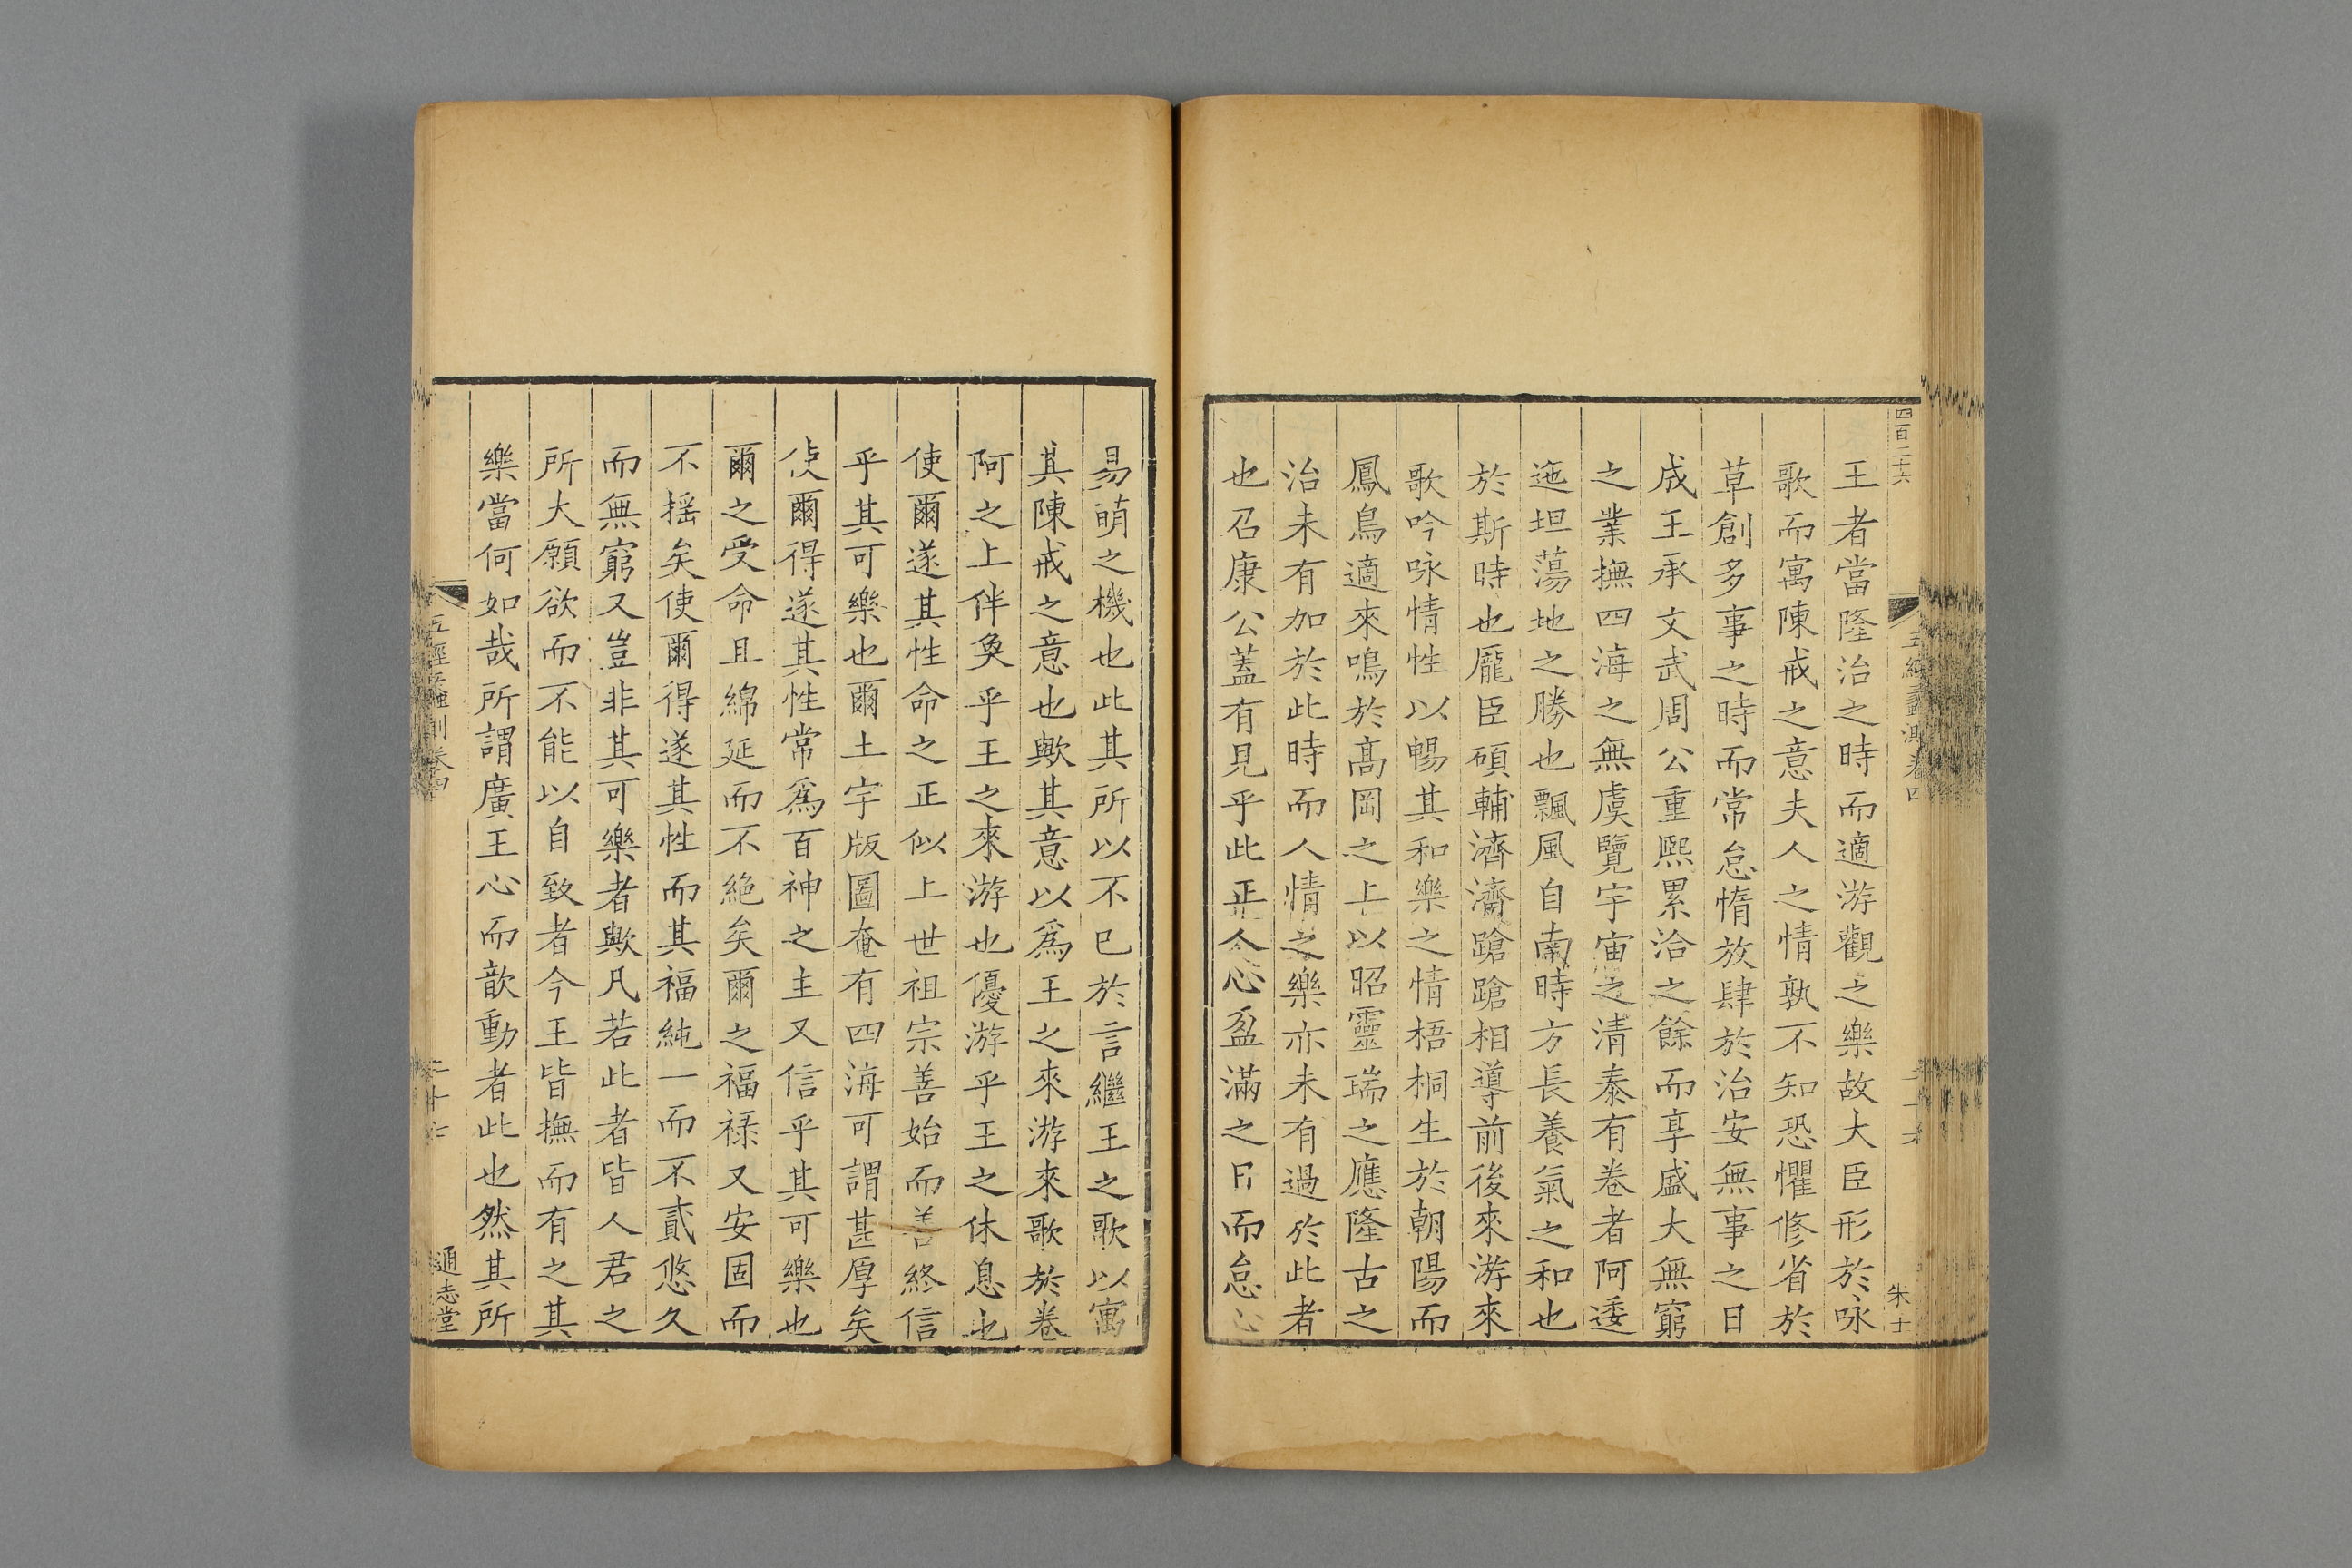 四百二十六
五經蠡測卷四
朱士
王者當隆治之時而適游觀之樂故大臣形於咏
歌而寓陳戒之意夫人之情孰不知恐懼修省於
草創多事之時而常怠惰放肆於治安無事之日
成王承文武周公重熙累洽之餘而享盛大無窮
之業撫四海之無虞覽宇宙之清泰有卷者阿逶
迤坦蕩地之勝也飄風自南時方長養氣之和也
於斯時也厖臣碩輔濟濟蹌蹌相導前後來游來
歌吟咏情性以暢其和樂之情梧桐生於朝陽而
鳳鳥適來鳴於髙岡之上以昭靈瑞之應隆古之
治未有加於此時而人情之樂亦未有過於此者
也召康公蓋有見乎此正人心盈滿之日而怠心
易萌之機也此其所以不已於言繼王之歌以寓
其陳戒之意也歟其意以爲王之來游來歌於卷
阿之上伴奐乎王之來游也優游乎王之休息也
使爾遂其性命之正似上世祖宗善始而善終信
乎其可樂也爾土宇版圖奄有四海可謂甚厚矣
使爾得遂其性常爲百神之主又信乎其可樂也
爾之受命且綿延而不絕矣爾之福祿又安固而
不搖矣使爾得遂其性而其福純一而不貳悠久
而無窮又豈非其可樂者歟凡若此者皆人君之
所大願欲而不能以自致者今王皆撫而有之其
樂當何如哉所謂廣王心而歆動者此也然其所
五經蠡測卷四
二十七
通志堂